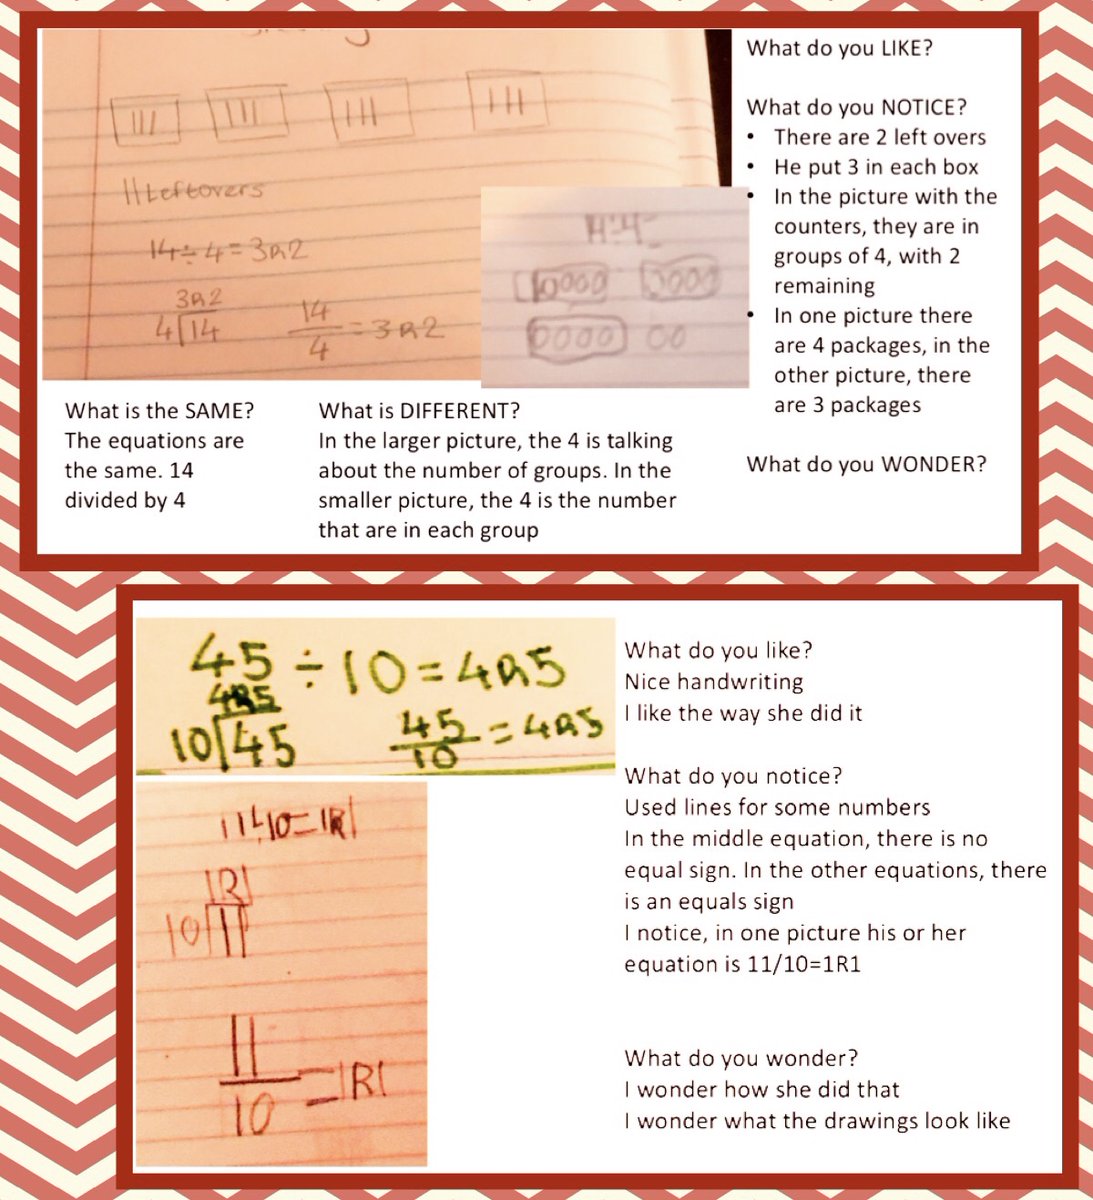 11 Leftovers
14÷4=3R2
3R2
4 14
14
4 =3R2
14÷4=
What do you LIKE?
What do you NOTICE?
• There are 2 left overs
• He put 3 in each box
• In the picture with the
counters, they are in
groups of 4, with 2
remaining
• In one picture there
are 4 packages, in the
other picture, there
are 3 packages
What do you WONDER?
What is the SAME?
The equations are
the same. 14
divided by 4
What is DIFFERENT?
In the larger picture, the 4 is talking
about the number of groups. In the
smaller picture, the 4 is the number
that are in each group
45÷10=4R5
4R5
10 45
45
10 =4R5
11÷10=1R1
1R1
10 11
11
10 =1R1
What do you like?
Nice handwriting
I like the way she did it
What do you notice?
Used lines for some numbers
In the middle equation, there is no
equal sign. In the other equations, there
is an equals sign
I notice, in one picture his or her
equation is 11/10=1R1
What do you wonder?
I wonder how she did that
I wonder what the drawings look like